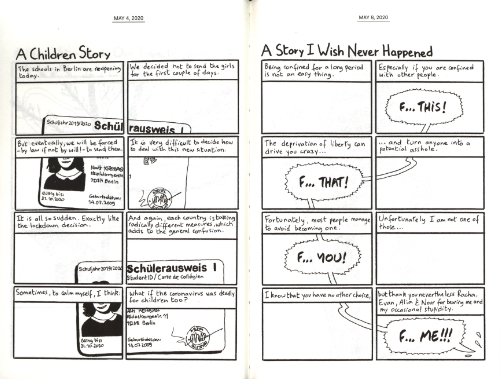 MAY 4, 2020
A Children Story
The schools in Berlin are reopening
today.
We decided not to send the girls
for the first couple of days.
Schuljahr 2019/2020 Schülerausweis I
But eventually, we will be forced
-by law if not by will!- to send them
It is very difficult to decide how
to deal with this new situation.
10719 Berlin
Gültig bis
31.10.2020
Geburtsdatum
14.07.2009
It is all so sudden. Exactly like
the lockdown decision.
And again, each country is taking
radically different measures, which
adds to the general confusion.
Schuljahr 2019/2020 Schülerausweis I
Student ID / Carte de collégien
Sometimes, to calm myself, I think:
what if the coronavirus was deadly
for children too?
Berlin
Gültig bis
31.10.2020
Geburtsdatum
14.07.2009
MAY 8, 2020
A Story I Wish Never Happened
Being confined for a long period
is not an easy thing.
Especially if you are confined
with other people.
F... THIS!
The deprivation of liberty can
drive you crazy...
...and turn anyone into a
potential asshole.
F... THAT!
Fortunately, most people manage
to avoid becoming one.
Unfortunately I am not one of
those...
F... YOU!
I know that you have no other choice,
but thank you nevertheless Racha,
Evan, Alin & Noor for bearing me and
my occasional stupidity.
F... ME!!!